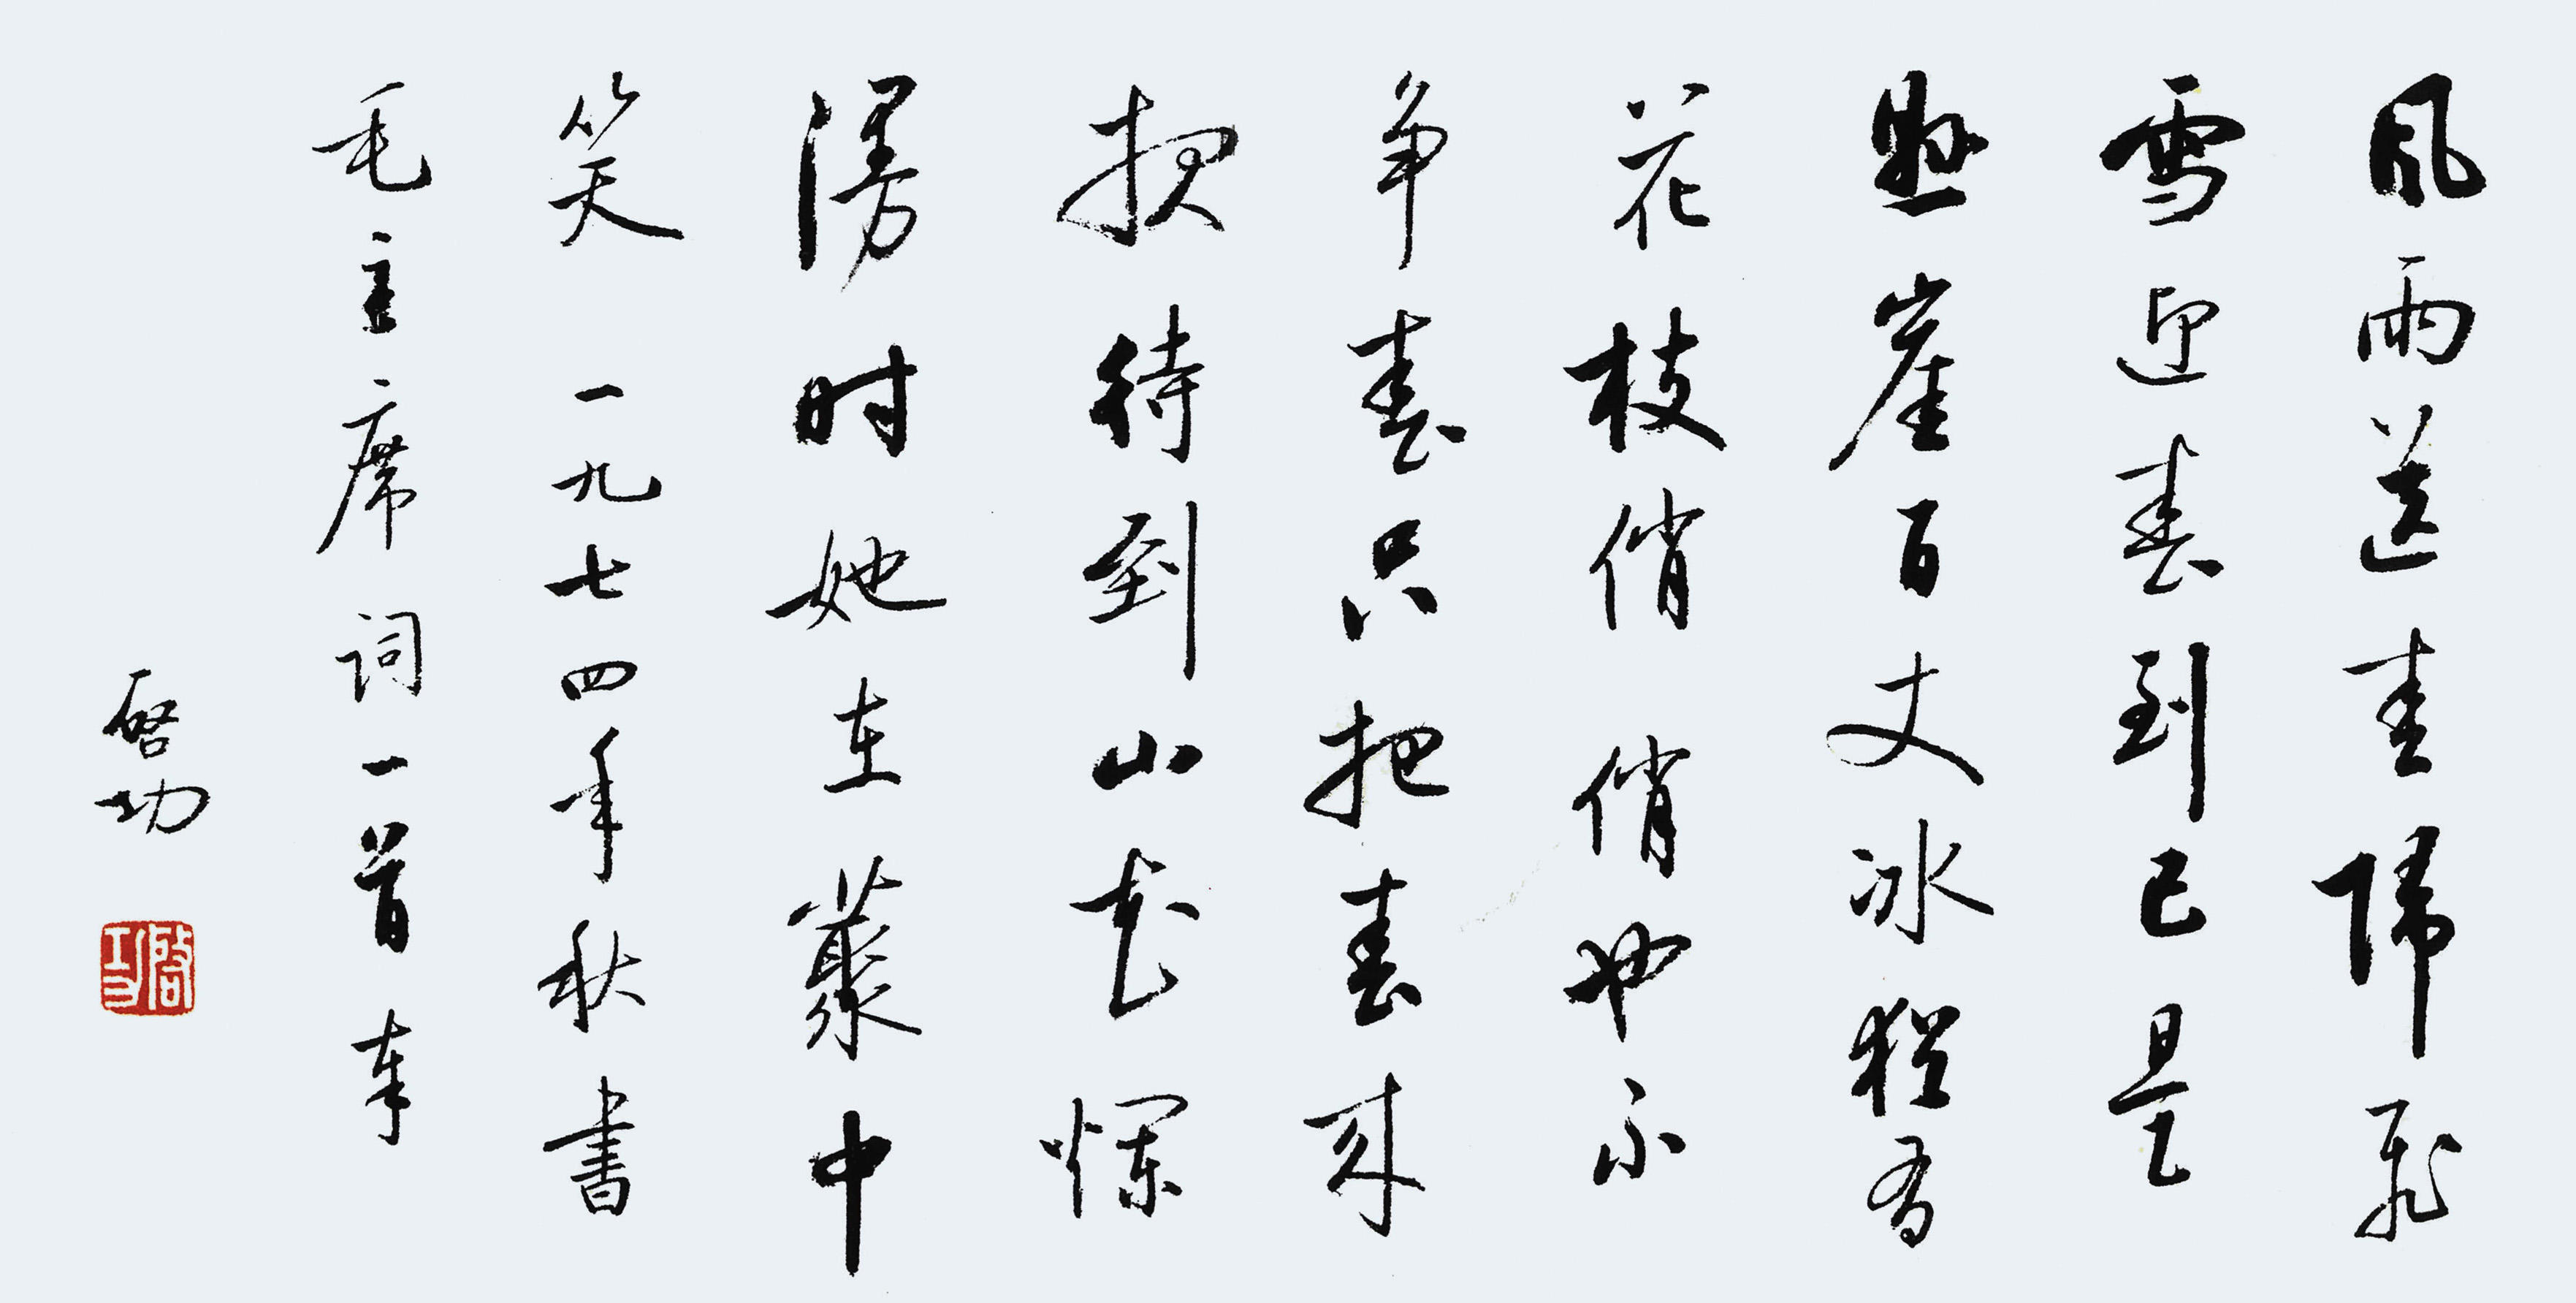 风雨送春歸飛
雪迎春到已是
懸崖百丈冰猶有
花枝俏俏也不
争春只把春来
报待到山花爛
漫时她在藂中
笑 一九七四年秋書
毛主席词一首奉
啓功
啓功